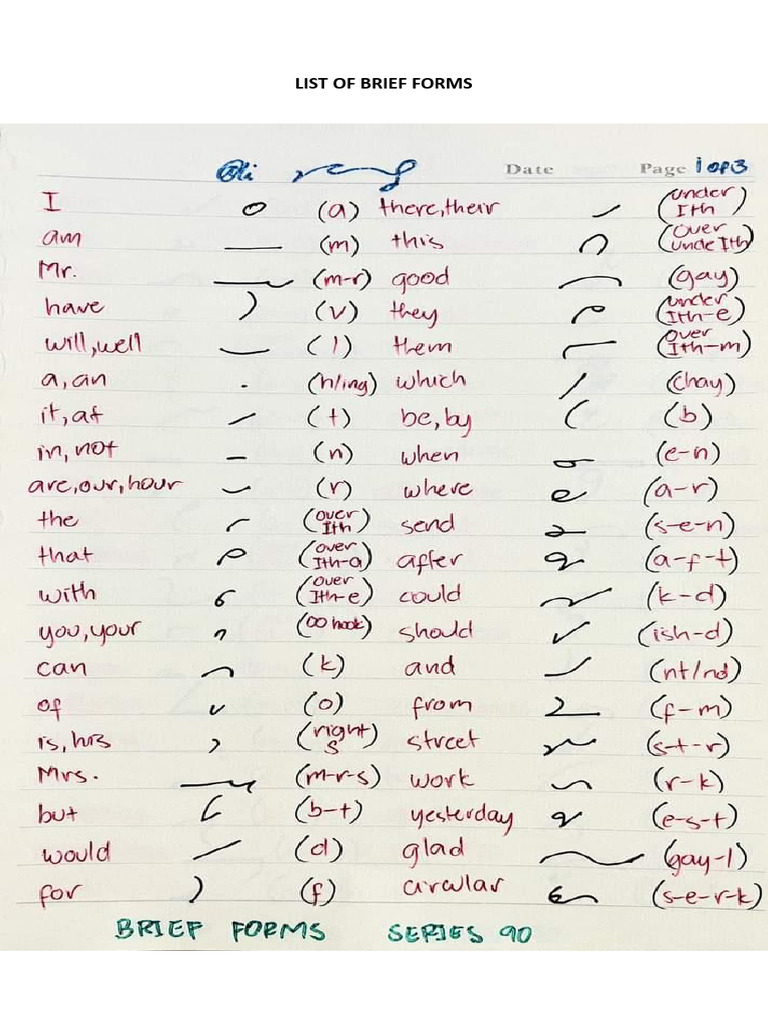 LIST OF BRIEF FORMS
Date Page 1 of 3
I (a) there, their (under Ith)
am (m) this (over unde Ith)
Mr. (m-r) good (gay)
have (v) they (under Ith-e)
will, well (l) them (over Ith-m)
a, an (h/ing) which (chay)
it, at (t) be, by (b)
in, not (n) when (e-n)
are, our, hour (r) where (a-r)
the (over Ith) send (s-e-n)
that (over Ith-a) after (a-f-t)
with (over Ith-e) could (k-d)
you, your (oo hook) should (ish-d)
can (k) and (nt/nd)
of (o) from (f-m)
is, his (right s) street (s-t-r)
Mrs. (m-r-s) work (r-k)
but (b-t) yesterday (e-s-t)
would (d) glad (gay-l)
for (f) circular (s-e-r-k)
BRIEF FORMS SERIES 90